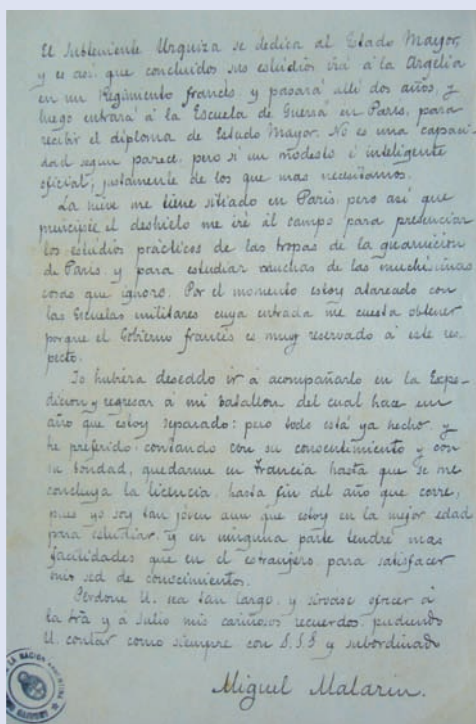 El Subteniente Urquiza se dedica al Estado Mayor,
y es así que concluidos sus estudios irá á la Argelia
en un Regimiento francés y pasará allí dos años, y
luego entrará á la Escuela de Guerra en París, para
recibir el diploma de Estado Mayor. No es una capaci-
dad segun parece, pero sí un modesto é inteligente
oficial, justamente de los que mas necesitamos.
La nieve me tiene sitiado en París, pero así que
principie el deshielo me iré al campo para presenciar
los estudios prácticos de las tropas de la guarnicion
de París y para estudiar muchas de las muchísimas
cosas que ignoro. Por el momento estoy atareado con
las Escuelas militares cuya entrada me cuesta obtener
porque el Gobierno francés es muy reservado á este res-
pecto.
Yo hubiera deseado ir á acompañarlo en la Expe-
dicion y regresar á mi batallon del cual hace un
año que estoy separado: pero todo está ya hecho y
he preferido, contando con su consentimiento y con
su bondad, quedarme en Francia hasta que se me
concluya la licencia, hasta fin del año que corre,
pues yo soy tan jóven aun que estoy en la mejor edad
para estudiar y en ninguna parte tendré mas
facilidades que en el estranjero para satisfacer
mis sed de conocimientos.
Perdone U. sea tan largo y sírvase ofrecer á
la Sra y á Julio mis cariñosos recuerdos pudiendo
U. contar como siempre con S.S.S y subordinado
Miguel Malarin.
DE LA NACION ARGENTINA